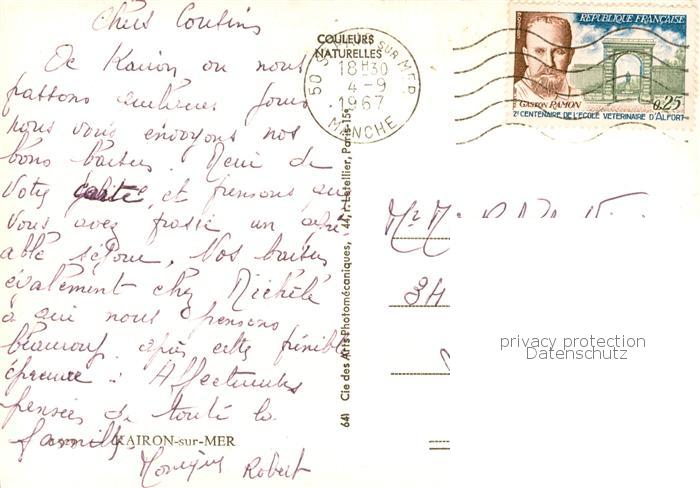 Chers Cousins
De Kairon où nous
passons quelques jours
nous vous envoyons nos
bons baisers. Merci de
votre carte, et pensons que
vous avez passé un agré
able séjour, Nos baisers
également chez Michèle
à qui nous pensons
beaucoup après cette pénible
épreuve. Affectueuses
pensées de toute la
famille
KAIRON-sur-MER
Monique Robert
COULEURS
NATURELLES
50 SUR-MER
18H30
4-9
1967
MANCHE
641 Cie des Arts Photomécaniques, 44, r. Letellier, Paris-15e
RÉPUBLIQUE FRANÇAISE
GASTON RAMON
0,25
2e CENTENAIRE DE L'ÉCOLE VÉTÉRINAIRE D'ALFORT
34
privacy protection
Datenschutz